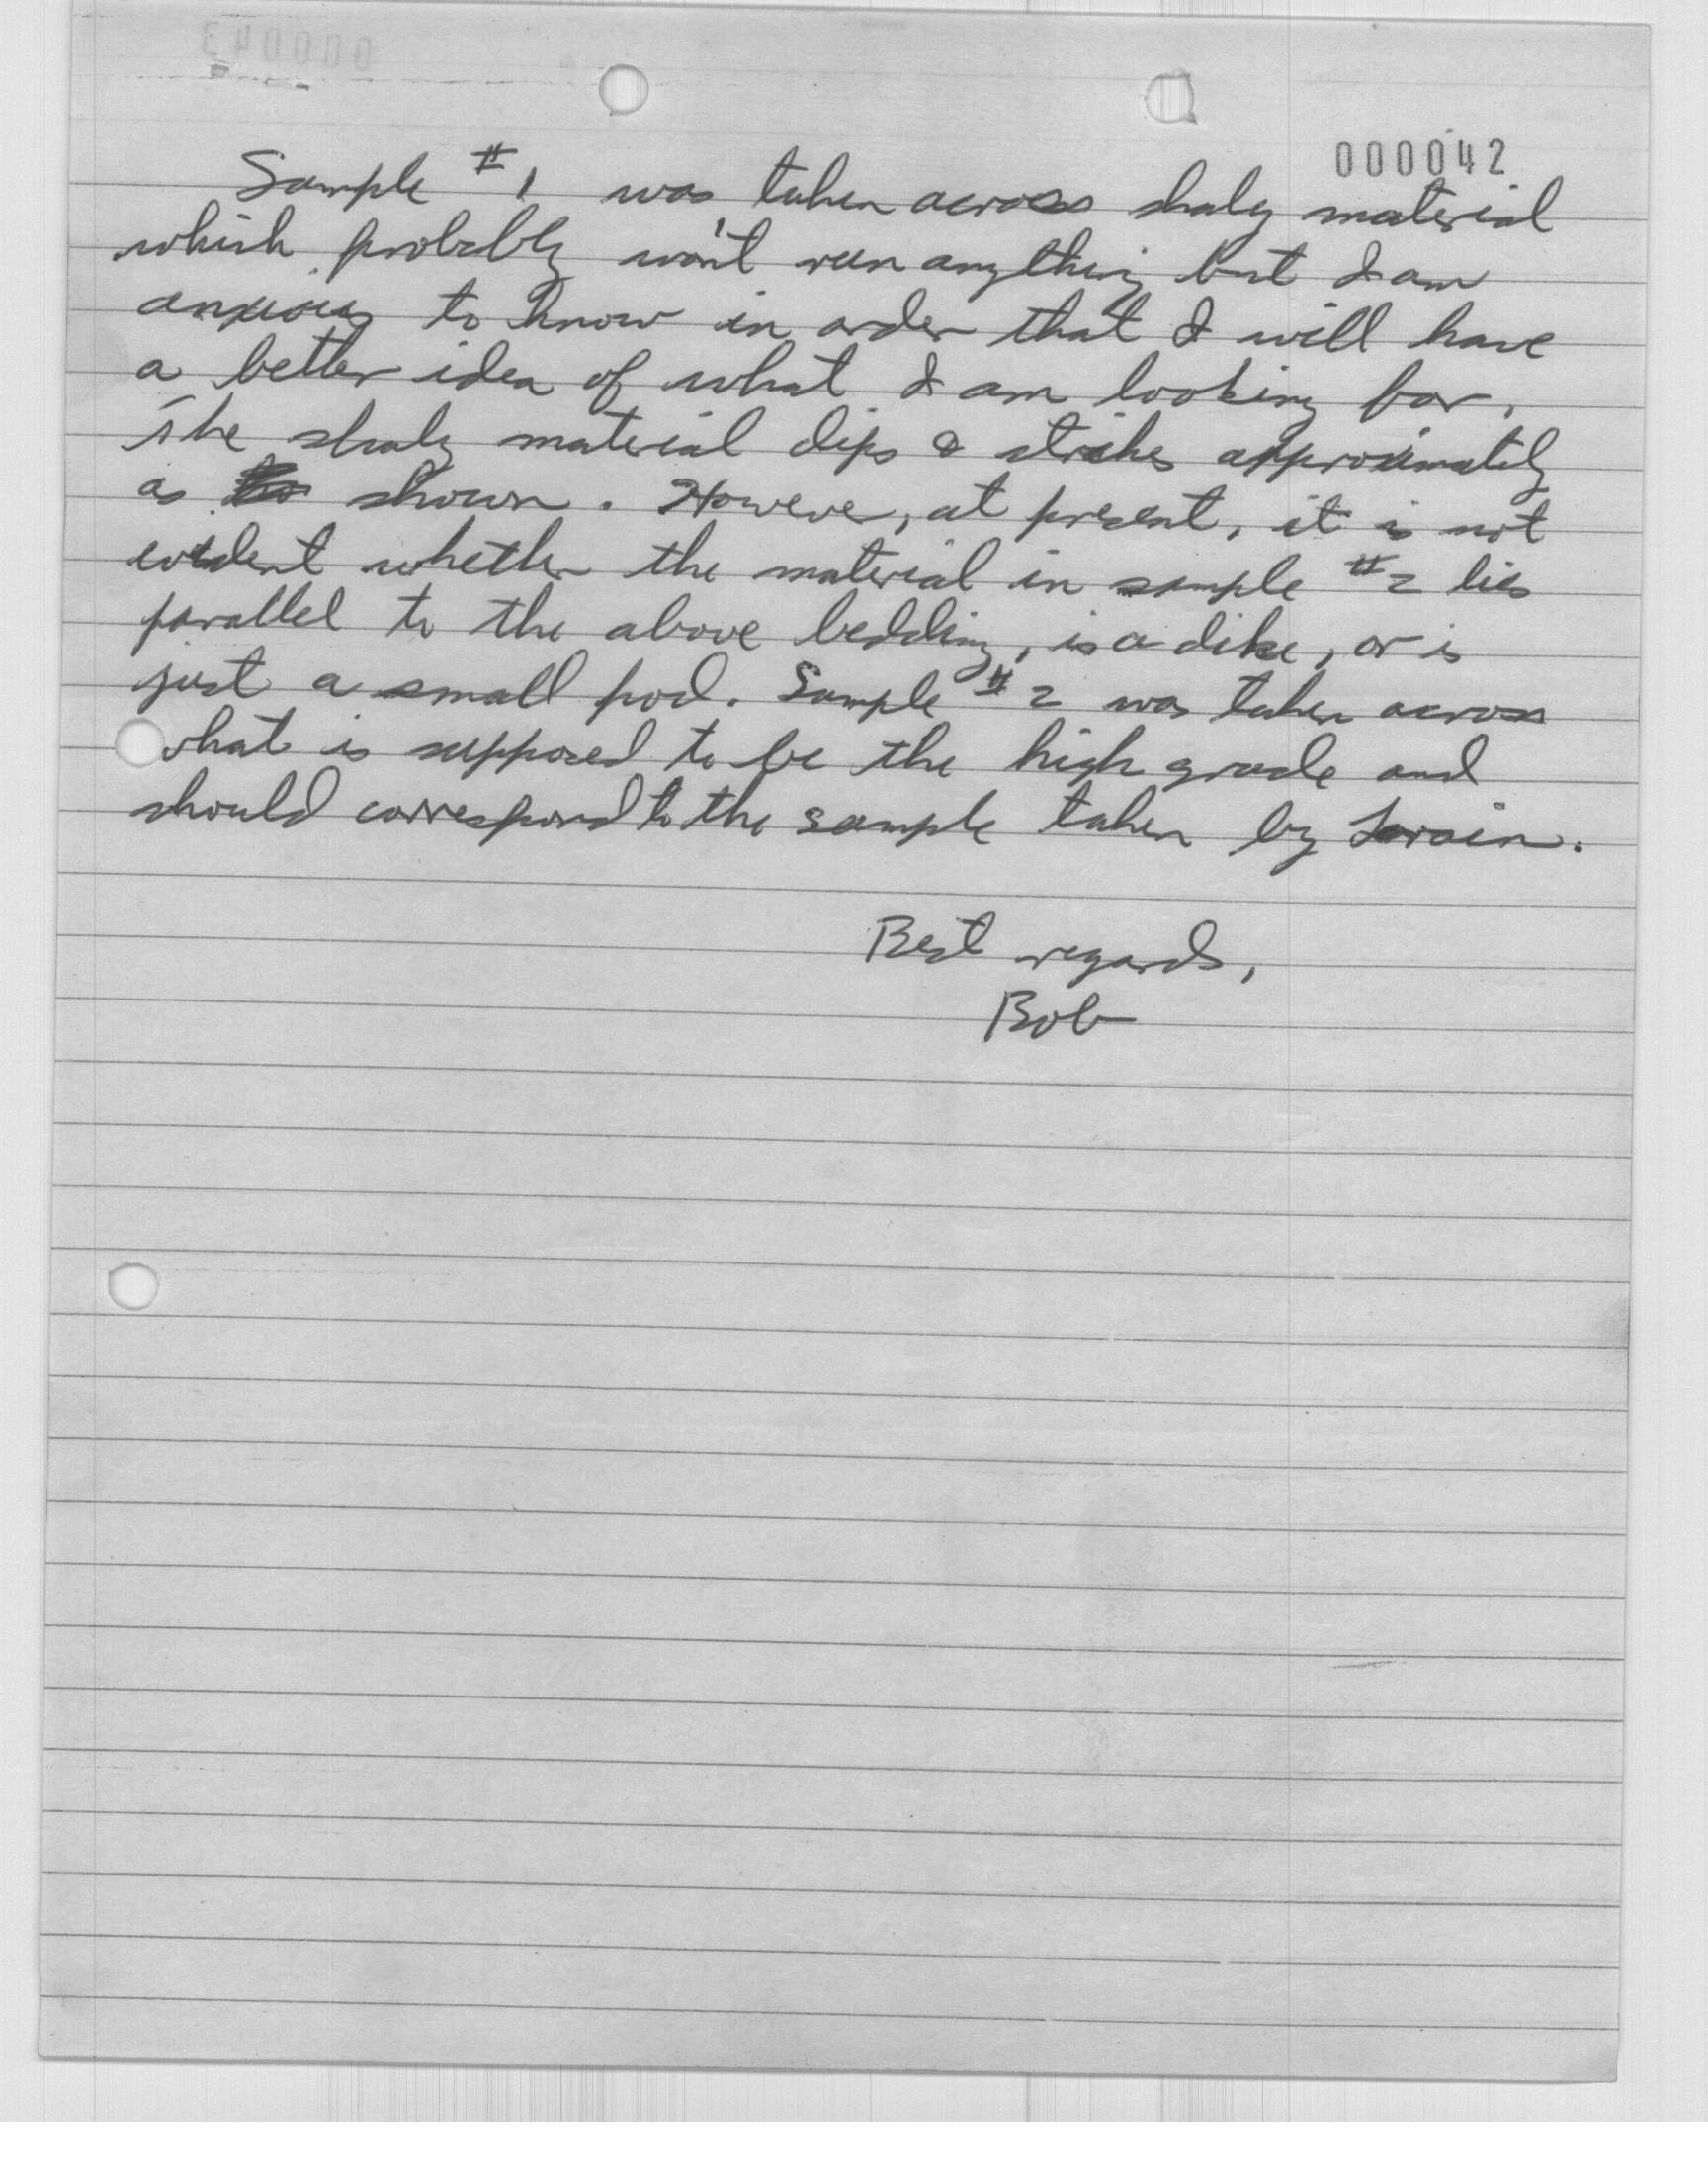 000042
Sample #1 was taken across shaly material
which probably won't run anything but I am
anxious to know in order that I will have
a better idea of what I am looking for.
The shaly material dips & strikes approximately
as shown. However, at present, it is not
evident whether the material in sample #2 lies
parallel to the above bedding, is a dike, or is
just a small pod. Sample #2 was taken across
what is supposed to be the high grade and
should correspond to the sample taken by
Best regards,
Bob